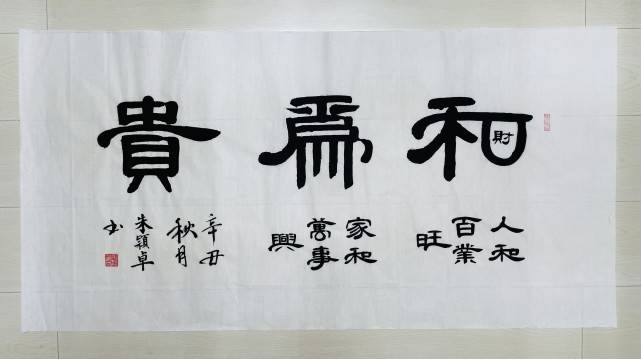 和為貴
財
人和
百業
旺
家和
萬事
興
辛丑
秋月
朱穎卓
书